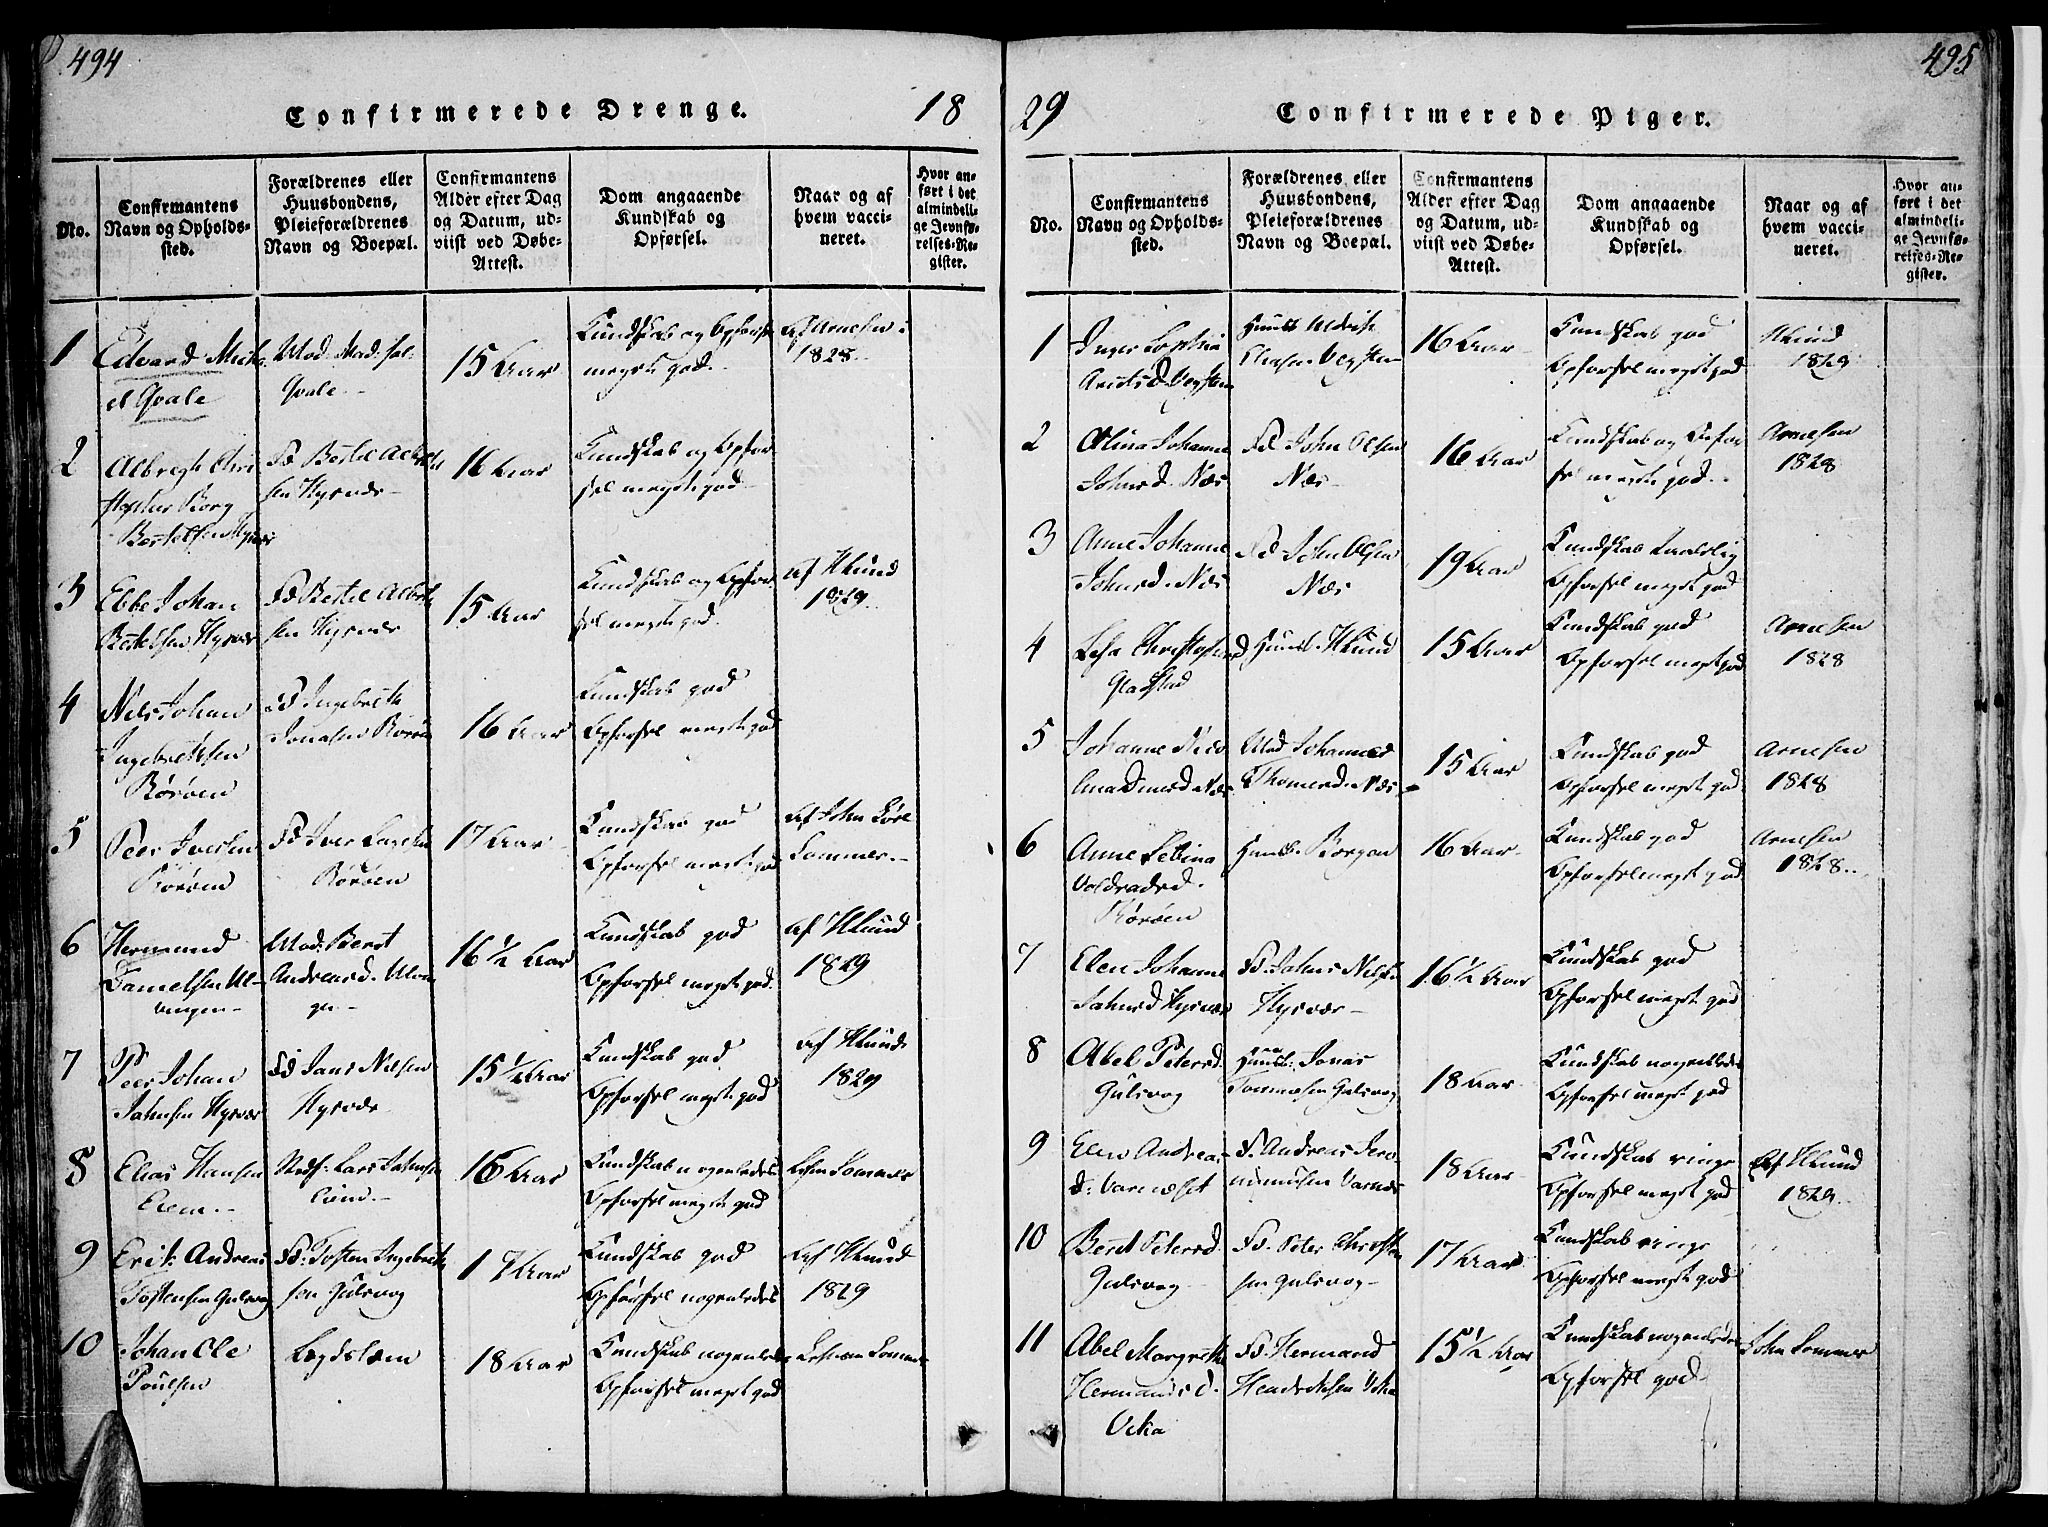 494
Confirmerede Drenge.
18
No.
Confirmantens Navn og Opholds-sted.
Forældrenes eller Huusbondens, Pleieforældrenes Navn og Boepæl.
Confirmantens Alder efter Dag og Datum, ud-viist ved Døbe-Attest.
Dom angaaende Kundskab og Opførsel.
Naar og af hvem vacci-neret.
Hvor an-ført i det almindeli-ge Jevnfø-relses-Re-gister.
1
Edvard Mich
el Qvale
Mod. Mad. sal.
Qvale
15 Aar
Kundskab og Opførsel
meget god
Af Arnesen i
1828
2
Albregt Chri
stopher Borg
Bertelsen Hysvær
Fd Bertel Albrekt
sen Hysvær
16 Aar
Kundskab og Opfør
sel meget god
3
Ebbe Johan
Bertelsen Hysvær
Fd Bertel Albrekt
sen Hysvær
15 Aar
Kundskab og Opfør
sel meget god
Af Hlund
1829
4
Nils Johan
Ingebretsen
Rørøen
Fd Ingebrekt
Jonasen Rørøen
16 Aar
Kundskab god
Opførsel meget god
5
Peer Iversen
Rørøen
Fd Iver
Rørøen
17 Aar
Kundskab god
Opførsel meget god
Af John
Sommer
6
Hermand
Danielsen Ul-
vingen
Mod. Beret
Andreasd. Ulvin
gen
16 1/2 Aar
Kundskab god
Opførsel meget god
Af Hlund
1829
7
Peer Johan
Jahnsen Hysvær
Fd Jans Nilsen
Hysvær
15 1/2 Aar
Kundskab god
Opførsel meget god
Af Hlund
1829
8
Elias Hansen
Lars Johnsen
16 Aar
Kundskab nogenledes
Opførsel meget god
Sommer
9
Erik Andreas
Tostensen Gulsvog
Fd. Tosten Ingebrekt
sen Gulsvog
17 Aar
Kundskab god
Opførsel nogenledes
Af Hlund
1829
10
Johan Ole
Poulsen
Legdslem
18 Aar
Kundskab nogenledes
Opførsel meget god
495
29
Confirmerede Piger.
No.
Confirmantens Navn og Opholds-sted.
Forældrenes eller Huusbondens, Pleieforældrenes Navn og Boepæl.
Confirmantens Alder efter Dag og Datum, ud-viist ved Døbe-Attest.
Dom angaaende Kundskab og Opførsel.
Naar og af hvem vacci-neret.
Hvor an-ført i det almindeli-ge Jevnfø-relses-Re-gister.
1
Inger Sophia
Arntsd. Vegsten
Huusb
Vegsten
16 Aar
Kundskab god
Opførsel meget god
Hlund
1829
2
Olina Johanna
Johnsd. Næs
Fd John Olsen
Næs
16 Aar
Kundskab og Opfør
sel meget god
Arnesen
1828
3
Anne Johanna
Johnsd. Næs
Fd John Olsen
Næs
19 Aar
Kundskab
Opførsel meget god
4
Christophersd
Gladstad
Huusb. Hlund
15 Aar
Kundskab god
Opførsel meget god
Arnesen
1828
5
Johanne Nico
Næs
Mod Johanna
Thomesd. Næs
15 Aar
Kundskab god
Opførsel meget god
Arnesen
1828
6
Anne Sebina
Voldradsd.
Rørøen
Huusb. Borgan
16 Aar
Kundskab god
Opførsel meget god
Arnesen
1828
7
Elen Johanna
Jahnsd Hysvær
Fd. Jahns Nilsen
Hysvær
16 1/2 Aar
Kundskab god
Opførsel meget god
8
Abel Petersd.
Gulsvog
Huusb. Jonas
Tommesen Gulsvog
18 Aar
Kundskab nogenledes
Opførsel meget god
9
Elen Andreas-
d. Varnæset
F. Andreas Jero
nimusen Varnæs
18 Aar
Kundskab ringe
Opførsel meget god
Af Hlund
1829
10
Beret Petersd.
Gulsvog
Fd. Peter Christen
sen Gulsvog
17 Aar
Kundskab ringe
Opførsel meget god
11
Abel Margrethe
Hermandsd.
Veka
Fd. Hermand
Hendriksen Veka
15 1/2 Aar
Kundskab nogenledes
Opførsel god
John Sommer